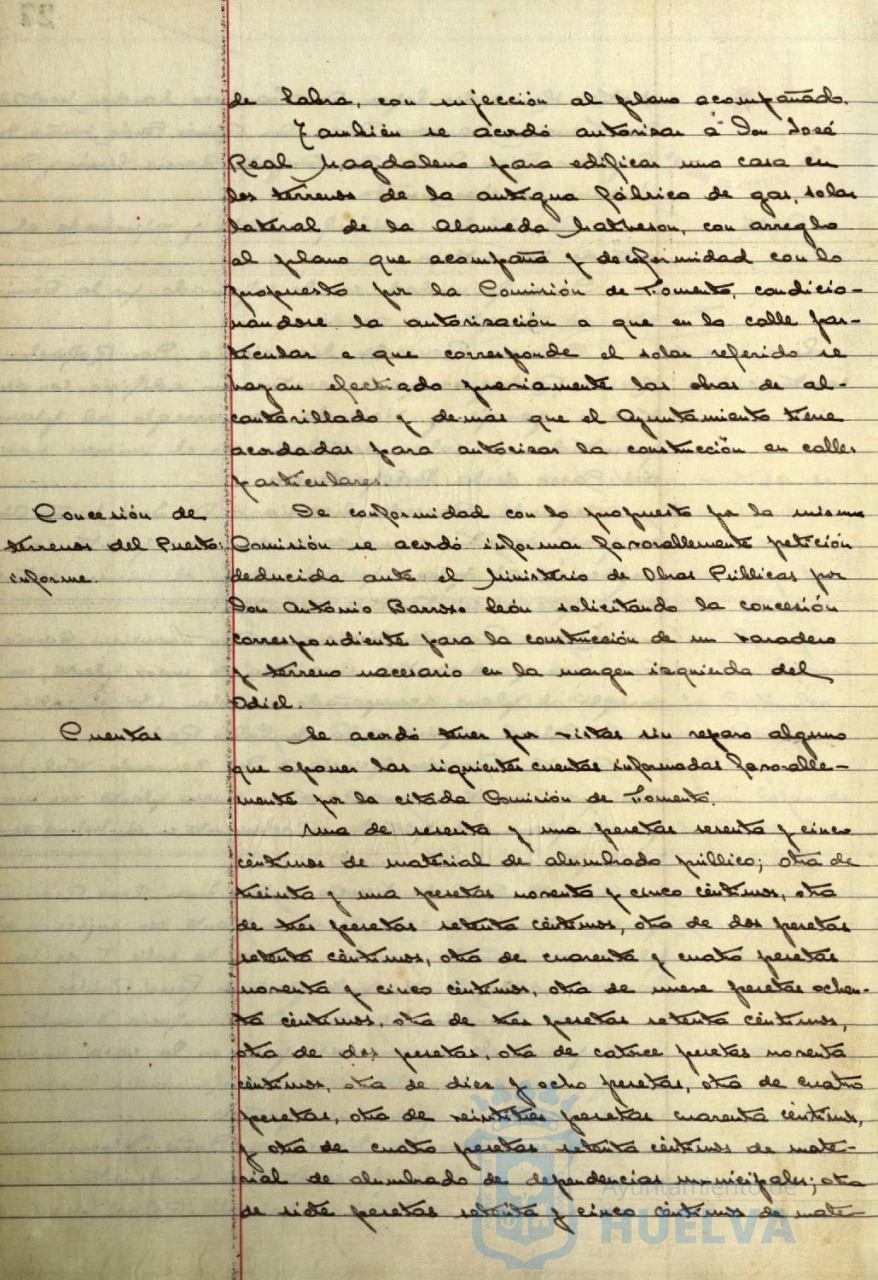 de Labra, con sujección al plano acompañado.
También se acordó autorisar a Don José
Real Magdaleno para edificar una casa en
los terrenos de la antigua fábrica de gas, solar
lateral de la Alameda Matheson, con arreglo
al plano que acompaña y de cofermidad con lo
propuesto por la Comisión de Fomento, condicio-
nándose la autorisación a que en la calle par-
ticular a que corresponde el solar referido se
hayan efectuado previamente las obras de al-
cantarillado y demás que el Ayuntamiento tiene
acordadas para autorisar la construcción en calles
particulares.
Concesión de
terrenos del Puerto:
informe.
De conformidad con lo propuesto por la misma
Comisión se acordó informar favorablemente petición
deducida ante el Ministerio de Obras Públicas por
Don Antonio Barroso León solicitando la concesión
correspondiente para la construcción de un varadero
y terreno necesario en la margen izquierda del
Odiel.
Cuentas
Se acordó tener por vistas sin reparo alguno
que oponer las siguientes cuentas informadas favorable-
mente por la citada Comisión de Fomento.
Una de sesenta y una pesetas sesenta y cinco
céntimos de material de alumbrado público; otra de
treinta y una pesetas noventa y cinco céntimos, otra
de tres pesetas setenta céntimos, otra de dos pesetas
setenta céntimos, otra de cuarenta y cuatro pesetas
noventa y cinco céntimos, otra de nueve pesetas ochen-
ta céntimos, otra de tres pesetas setenta céntimos,
otra de dos pesetas, otra de catorce pesetas noventa
céntimos, otra de dies y ocho pesetas, otra de cuatro
pesetas, otra de veintitres pesetas cuarenta céntimos,
y otra de cuatro pesetas setenta céntimos de mate-
rial de alumbrado de dependencias municipales; otra
de siete pesetas setenta y cinco céntimos de mate-
Ayuntamiento de
HUELVA